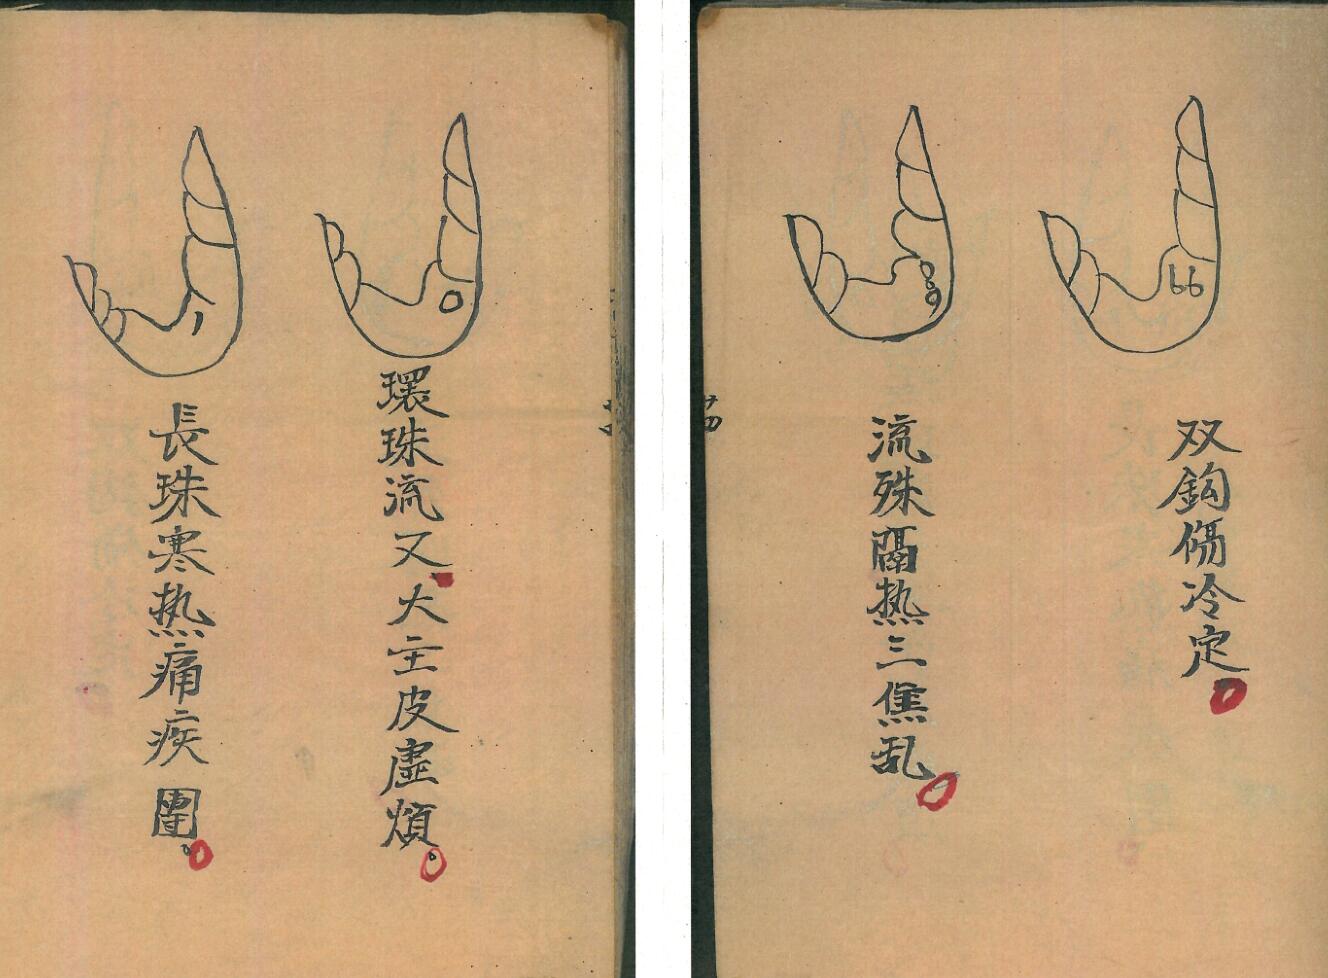 双鈎傷冷定
流殊膈热三焦乱
環珠流又大主皮虛煩
長珠寒热痛疾圍